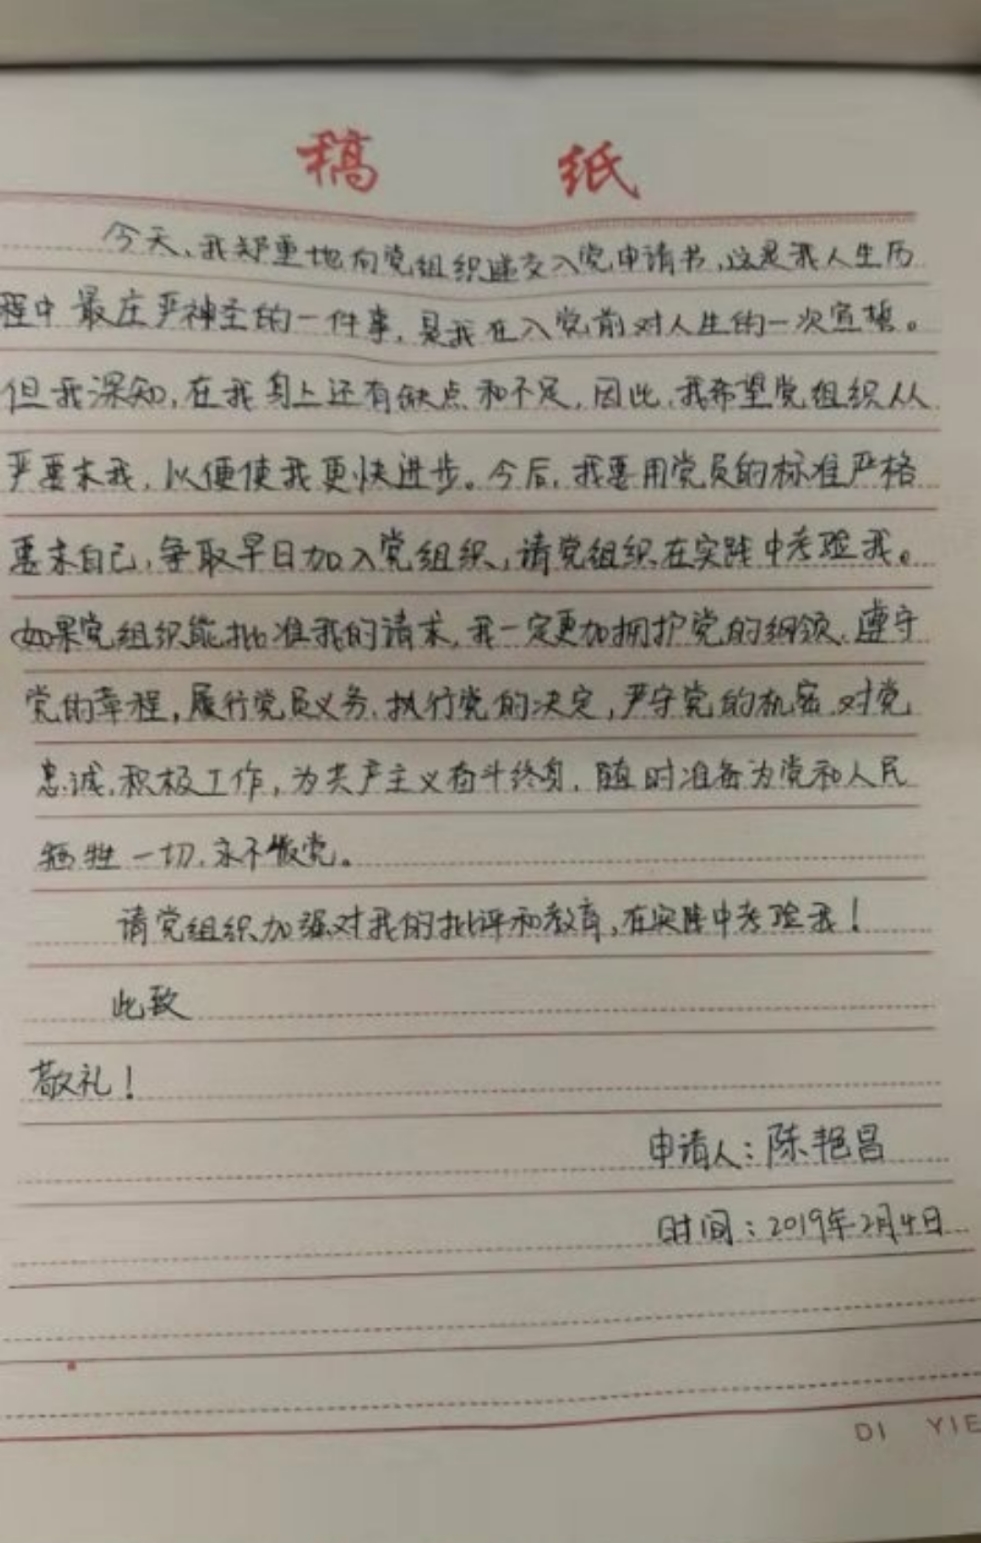 稿 纸
今天,我郑重地向党组织递交入党申请书,这是我人生历
程中最庄严神圣的一件事,是我在入党前对人生的一次宣誓。
但我深知,在我身上还有缺点和不足,因此,我希望党组织从
严要求我,以便使我更快进步。今后,我要用党员的标准严格
要求自己,争取早日加入党组织,请党组织在实践中考验我。
如果党组织能批准我的请求,我一定更加拥护党的纲领、遵守
党的章程,履行党员义务、执行党的决定,严守党的机密、对党
忠诚,积极工作,为共产主义奋斗终身,随时准备为党和人民
牺牲一切,永不叛党。
请党组织加强对我的批评和教育,在实践中考验我!
此致
敬礼!
申请人:陈艳昌
时间:2019年2月4日
DI YIE